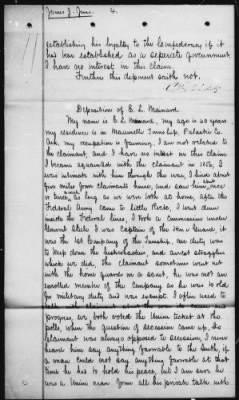 James J. 4.
establishing his loyalty to the Confederacy if it
has been established as a seperate government
I have no interest in this claim
Further this deponent saith not.
Deposition of E. L. Mainard.
My name is E. L. Mainard, my age is 60 years
my residence is in Township, Pulaski Co.
Ark, my occupation is farming. I am not related to
the claimant, and I have no interest in this claim
I became aquainted with the claimant in 1856, I
was intimate with him through the war, I lived about
five miles from claimants home, and saw him, once
or twice, as long as we were both at home, after the
Federal Army came to Little Rock, I was down
inside the Federal lines, I took a Commission under
I was Captain of the Home Guard, it
was the 1st Company of the Township, our duty was
to keep down the bushwhackers, and arrest stragglers
which we did, the claimant sometimes went out
with the home guards on a scout, he was not an
enrolled member of the Company as he was old
for military duty and was exempt. I often used to
a program, we both voted the Union ticket at the
polls, when the question of secession came up, the
claimant was always opposed to secession, I never
heard him say anything favorable to the South, if
a man could not say anything favorable at that
time he has to hold his peace, but I am sure he
was a Union man from all his private talk with